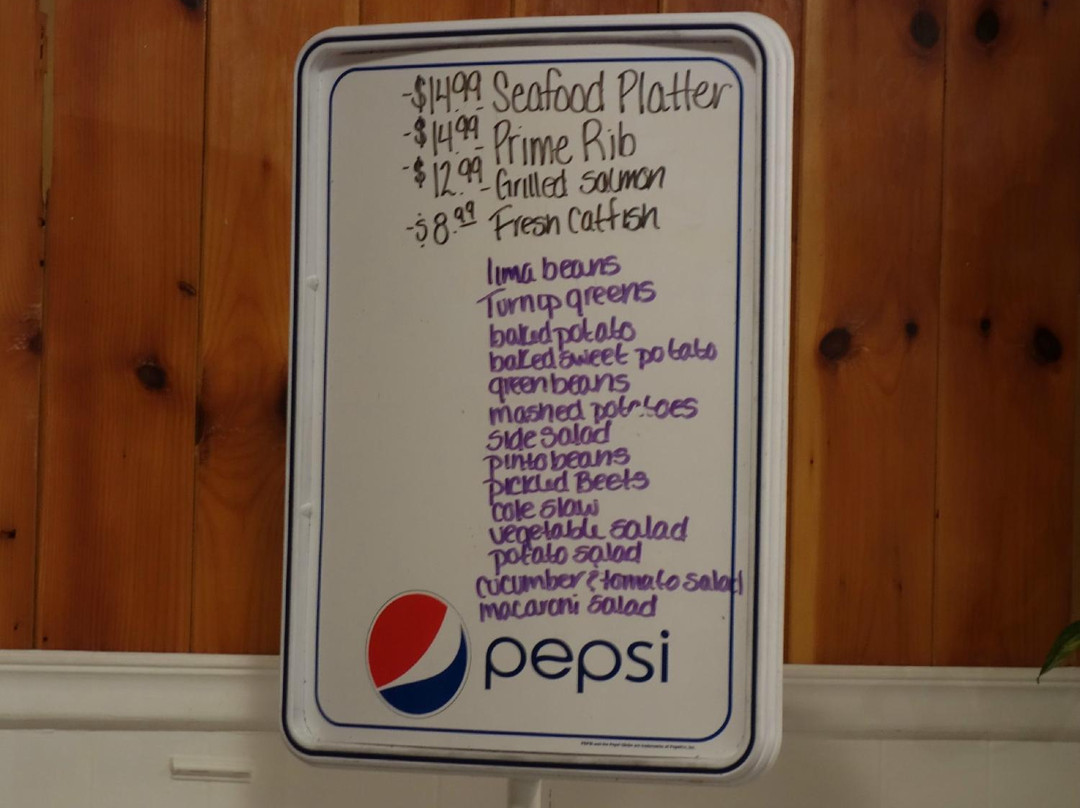 -$14.99 Seafood Platter
-$14.99 Prime Rib
-$12.99 Grilled Salmon
-$8.99 Fresh Catfish
lima beans
Turnip greens
baked potato
baked sweet potato
green beans
mashed potatoes
side salad
pinto beans
pickled Beets
cole slaw
vegetable salad
potato salad
cucumber & tomato salad
macaroni salad
pepsi